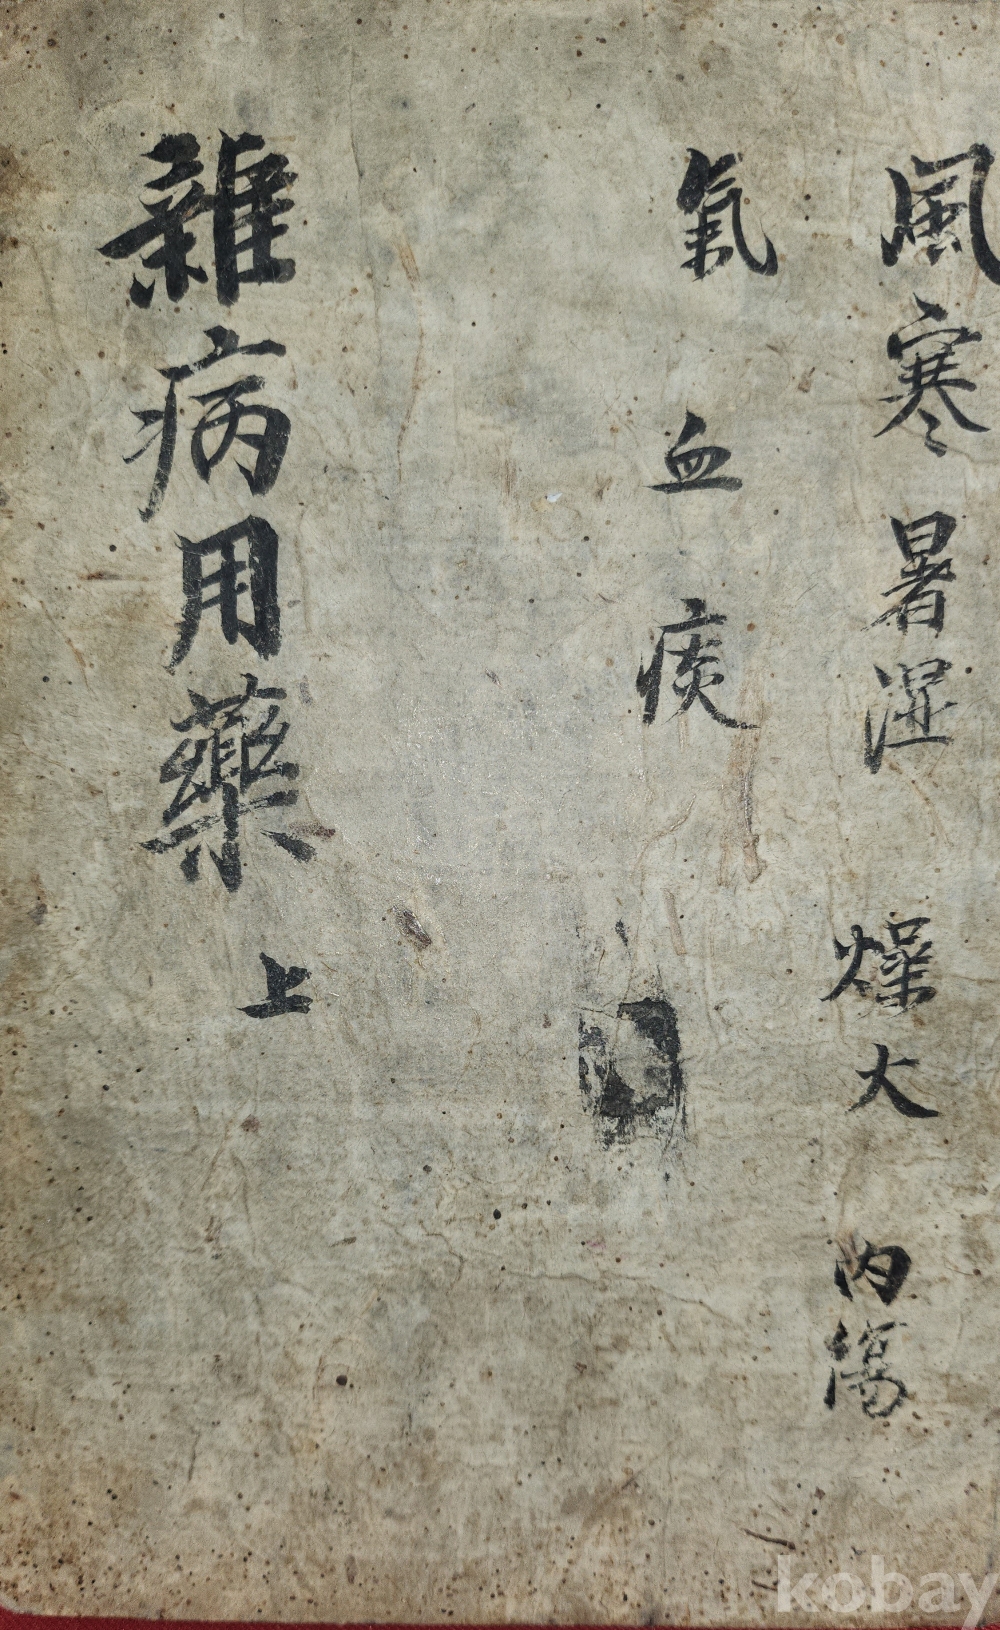 風寒暑湿燥火内傷
氣血痰
雜病用藥上
kobay